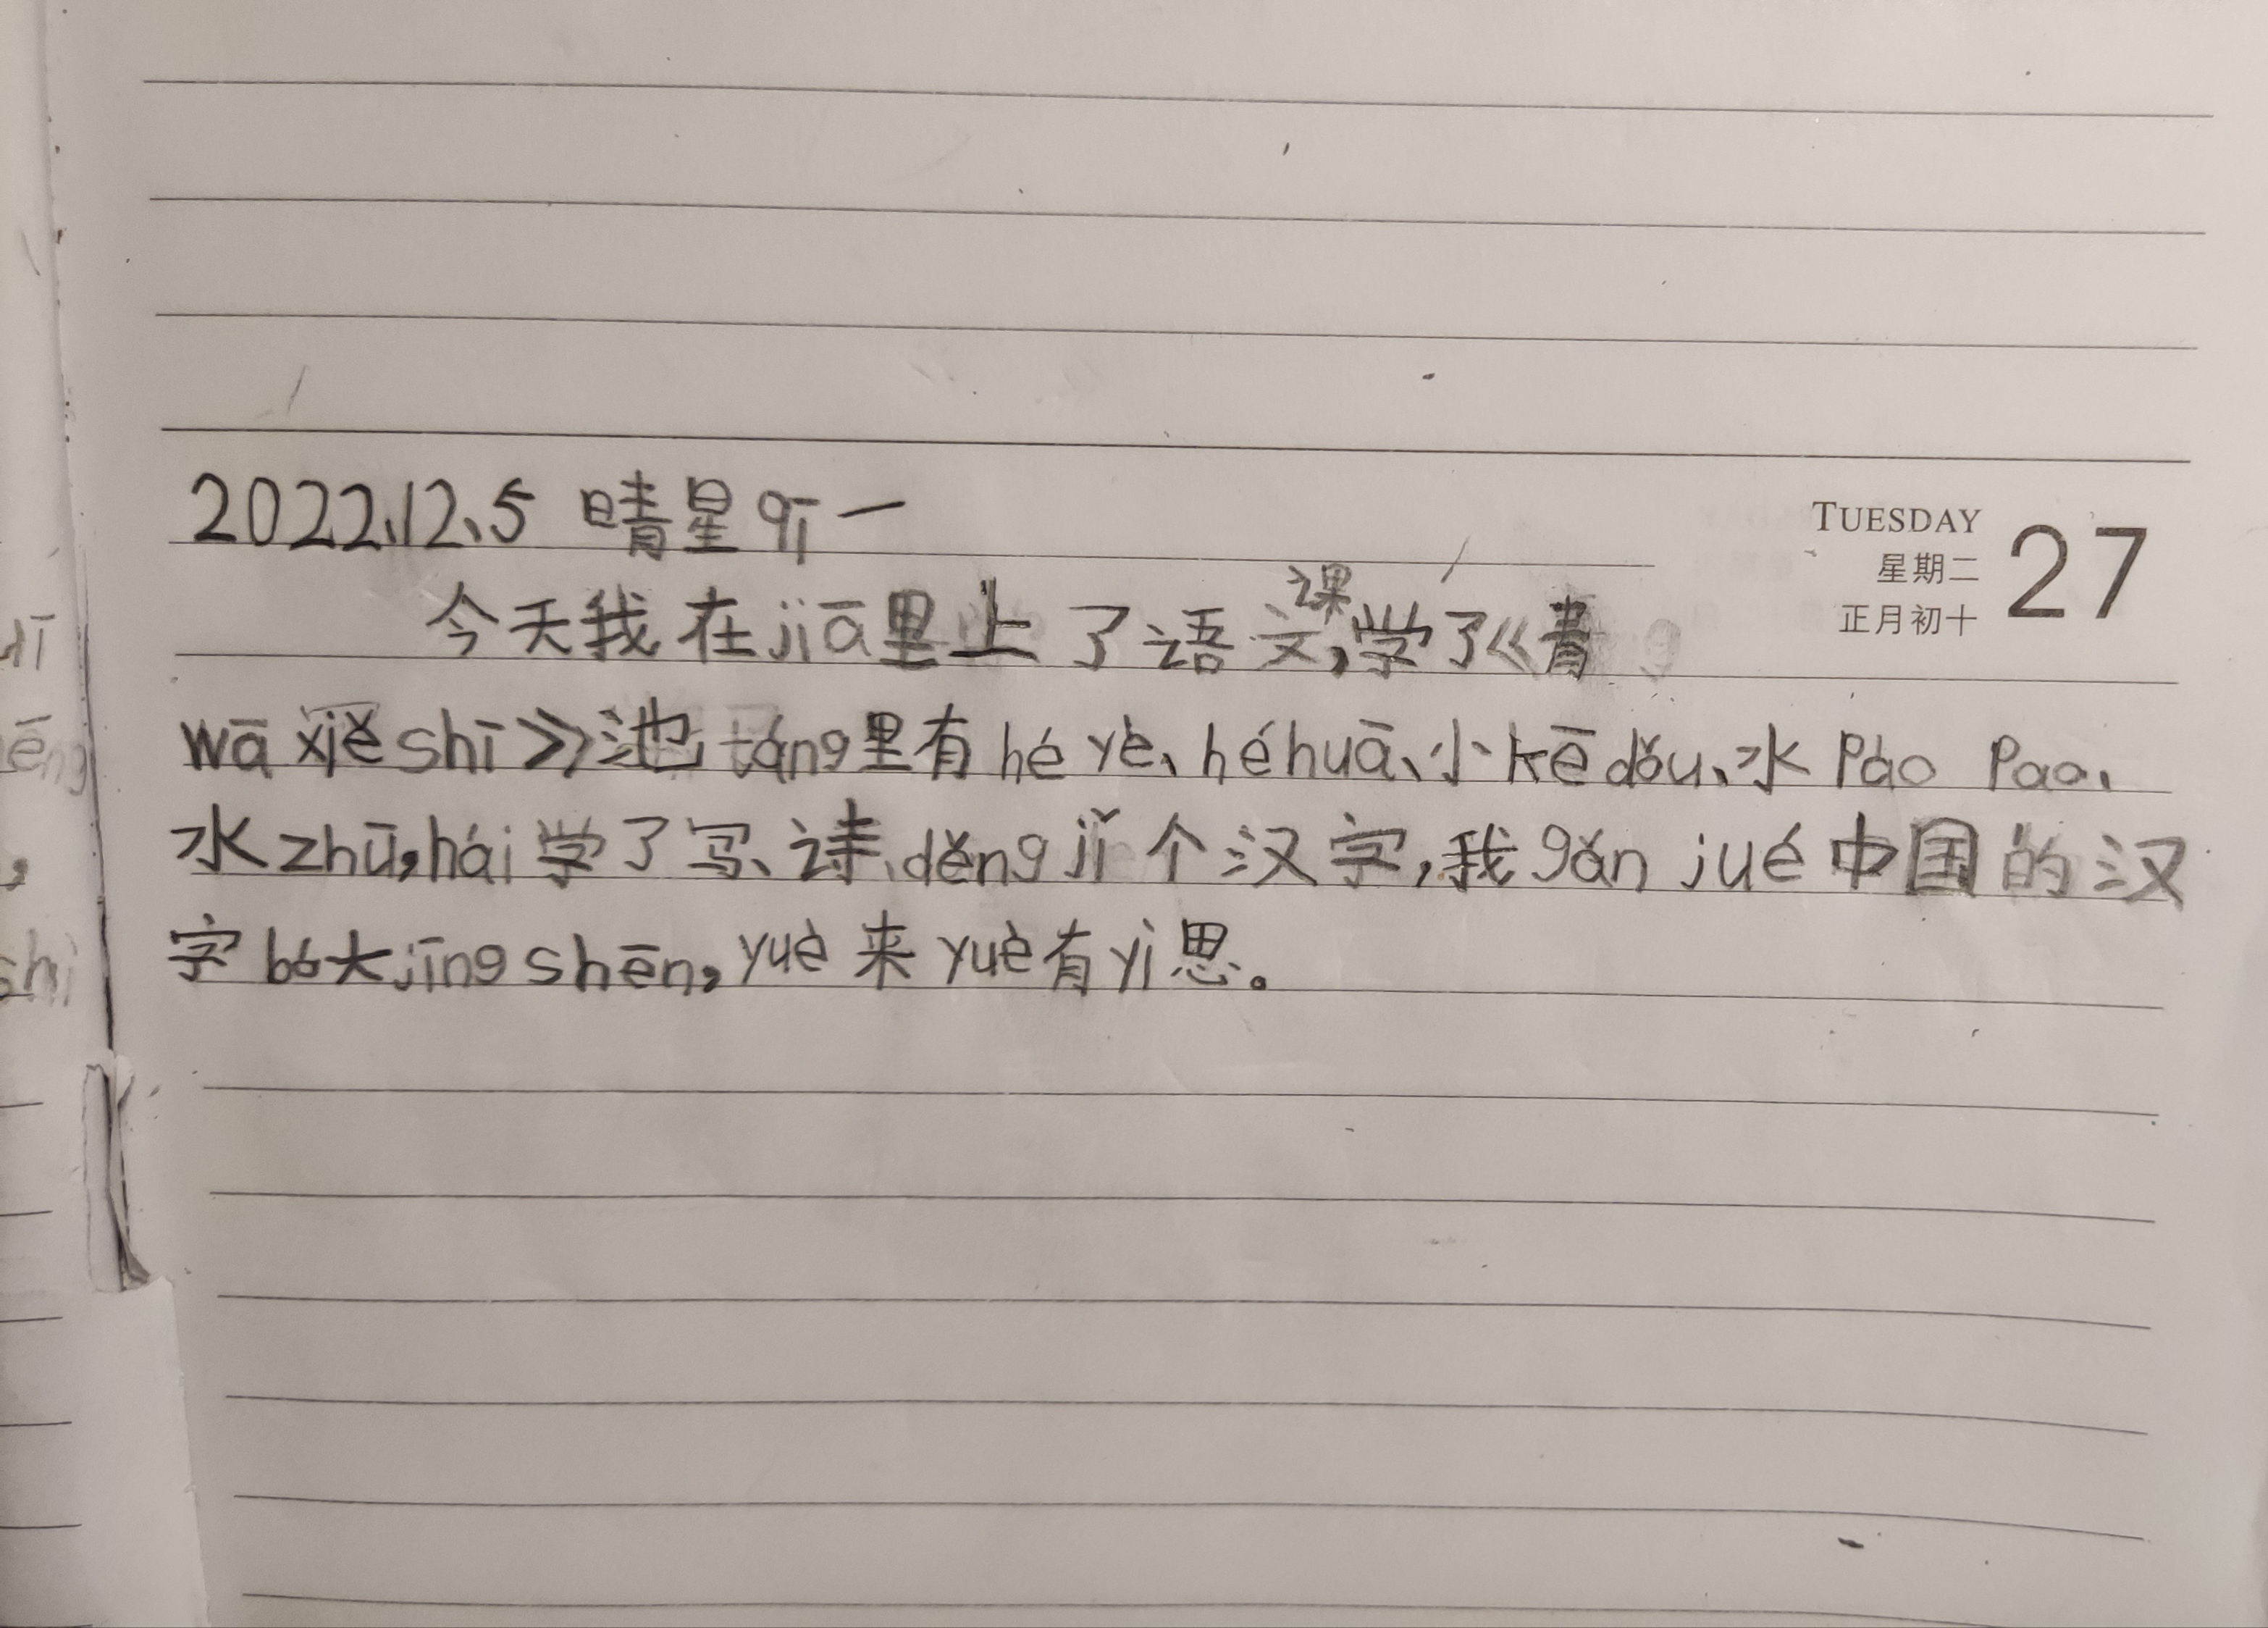 2022、12、5 晴星qī一
TUESDAY
星期二
正月初十
27
今天我在jiā里上了语文课,学了《青
wā xiě shī》池táng里有hé yè、hé huā、小kē dǒu、水Pào Pao、
水zhū,hái学了写、诗、děng jǐ个汉字,我gǎn jué中国的汉
字bó大jīng shēn,yuè来yuè有yì思。